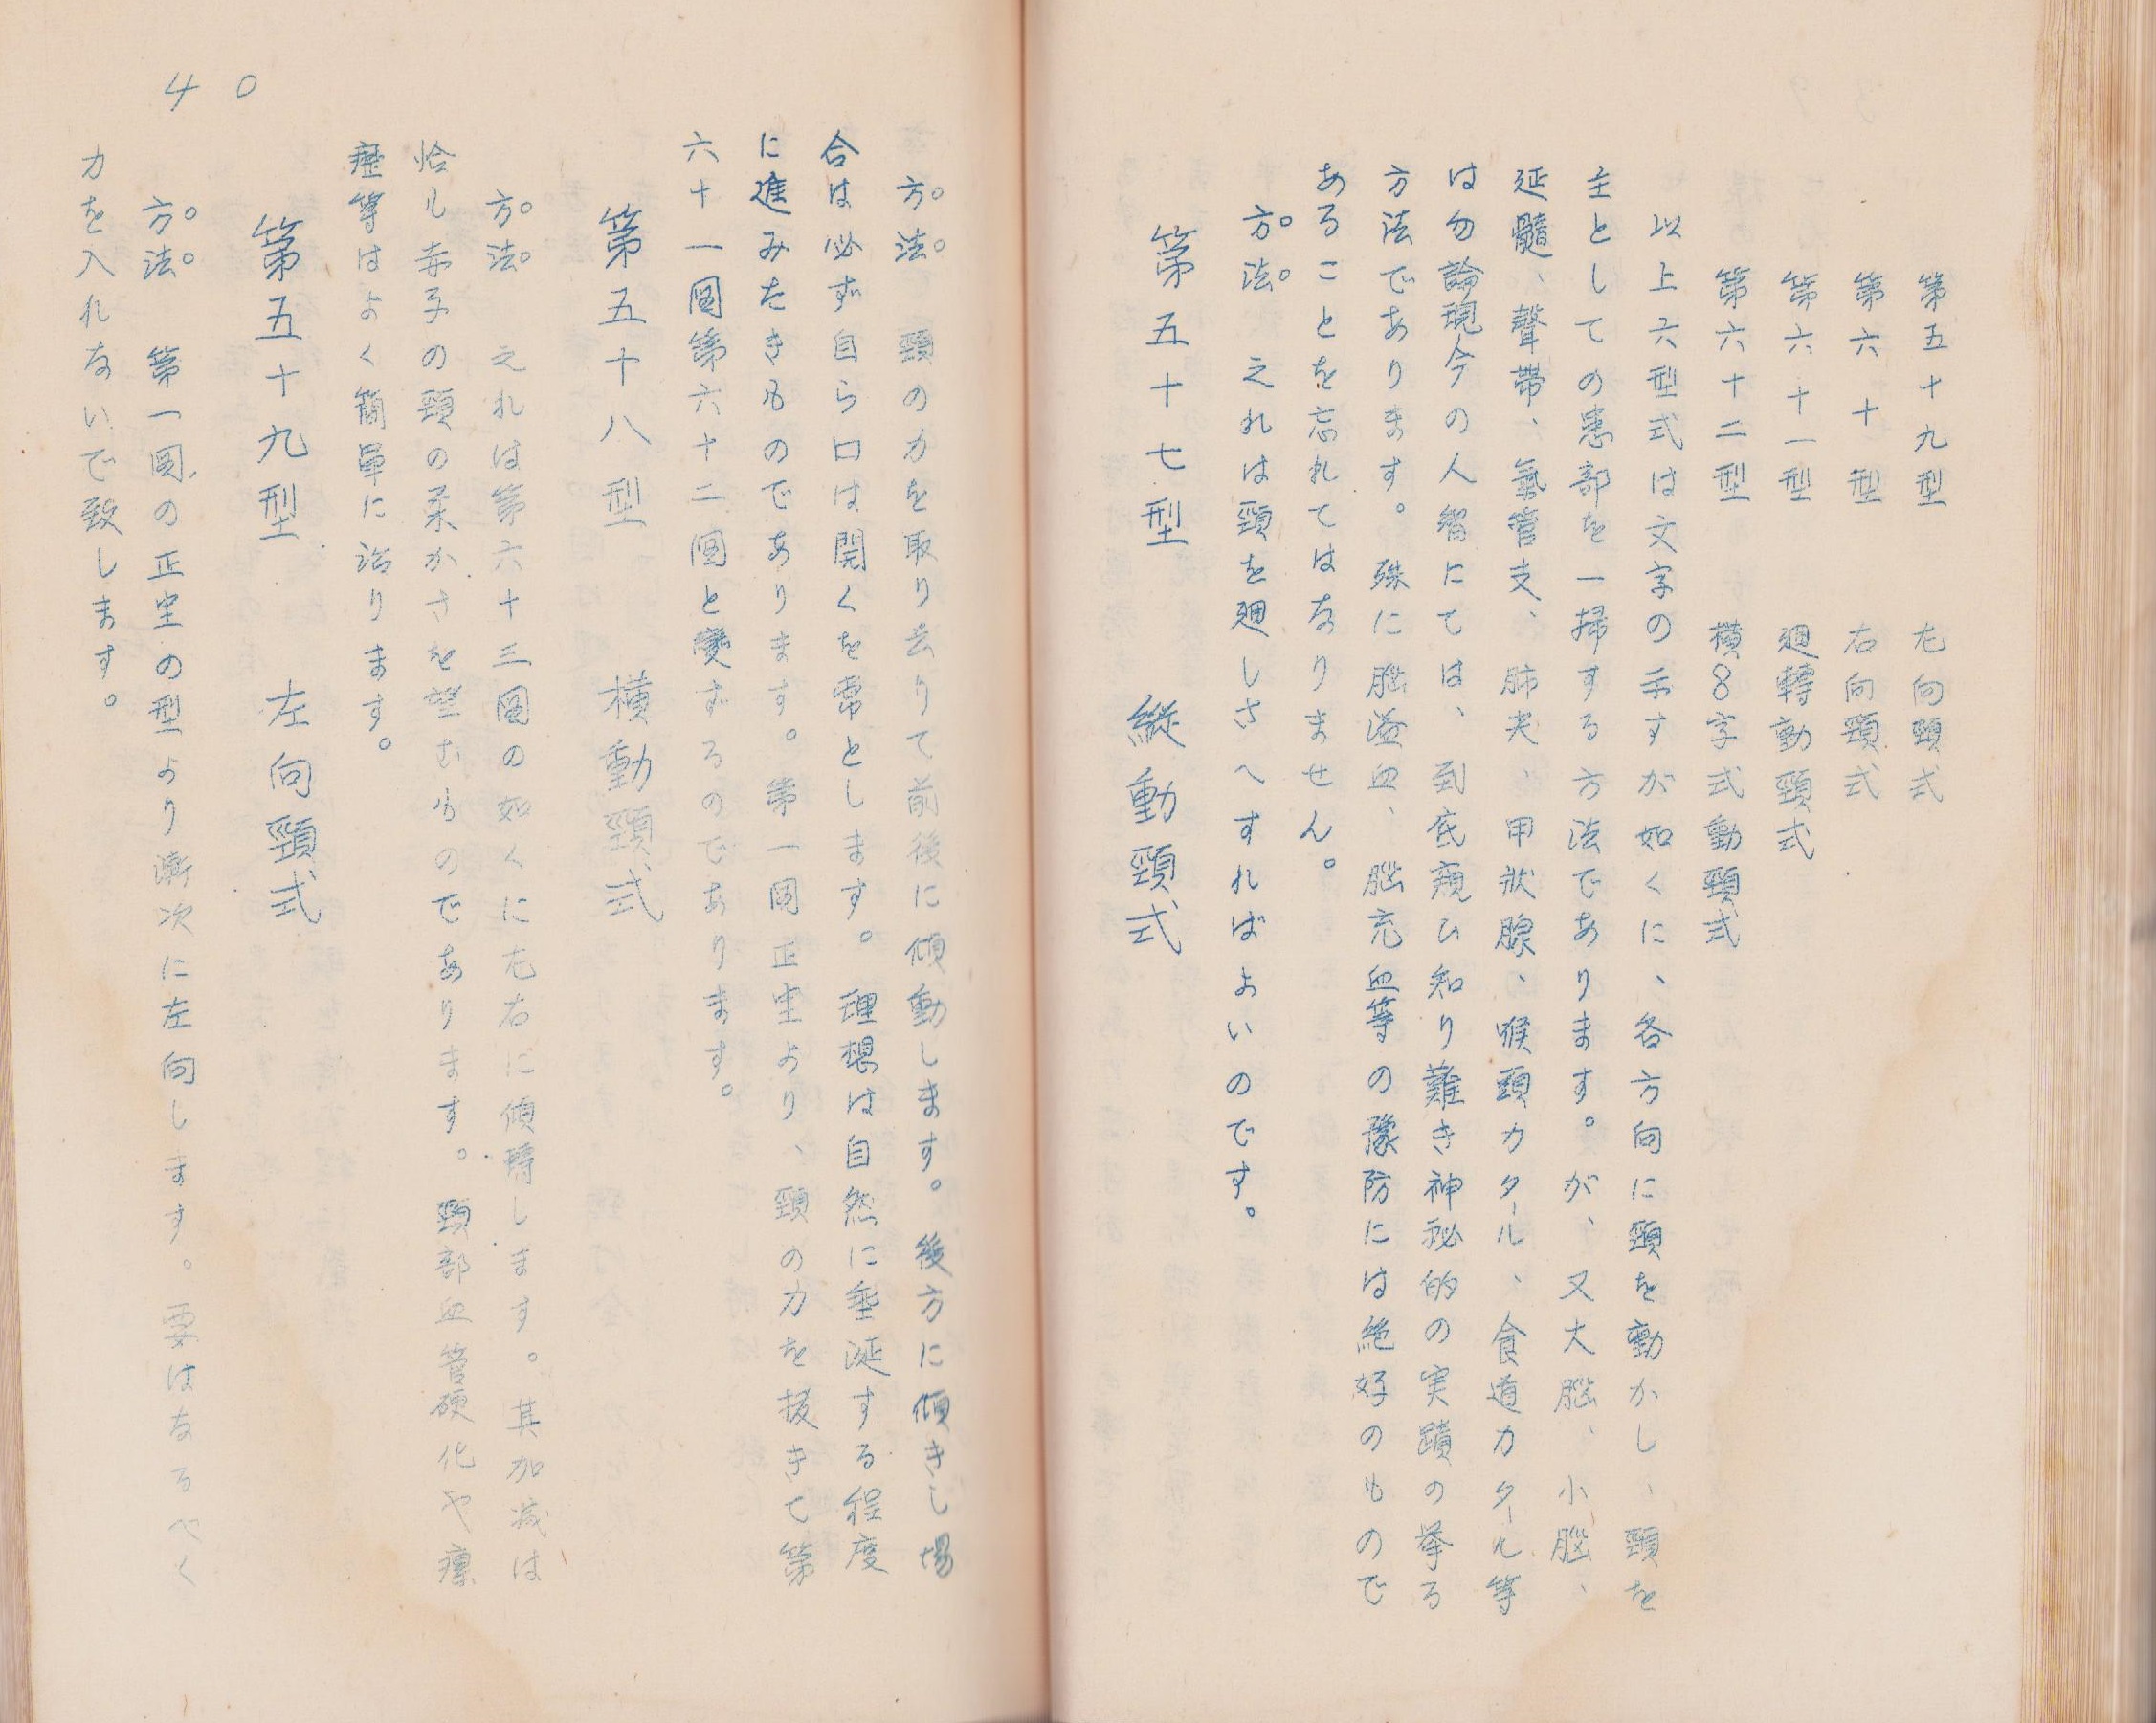 第五十九型　左向頸式
第六十型　右向頸式
第六十一型　廻轉動頸式
第六十二型　橫8字式動頸式
以上六型式は文字の示すが如くに、各方向に頸を動かし、頸を
主としての患部を一掃する方法であります。が、又大腦、小腦、
延髓、聲帶、氣管支、肺尖、甲狀腺、喉頭カタール、食道カタール等
は勿論現今の人智にては、到底窺ひ知り難き神祕的の実蹟の挙る
方法であります。殊に腦溢血、腦充血等の豫防には絶好のもので
あることを忘れてはなりません。
方法。之れは頸を廻しさへすればよいのです。
第五十七型　縱動頸式
方法。頸の力を取り去りて前後に傾動します。後方に傾きし場
合は必ず自ら口は開くを常とします。理想は自然に垂涎する程度
に進みたきものであります。第一圖正坐より、頸の力を拔きて第
六十一圖第六十二圖と變ずるのであります。
第五十八型　橫動頸式
方法。之れは第六十三圖の如くに左右に傾轉します。其加減は
恰ル赤子の頸の柔かさを望むものであります。頸部血管硬化や瘰
癧等はよく簡單に治ります。
第五十九型　左向頸式
方法。第一圖の正坐の型より漸次に左向します。要はなるべく
力を入れないで致します。
40